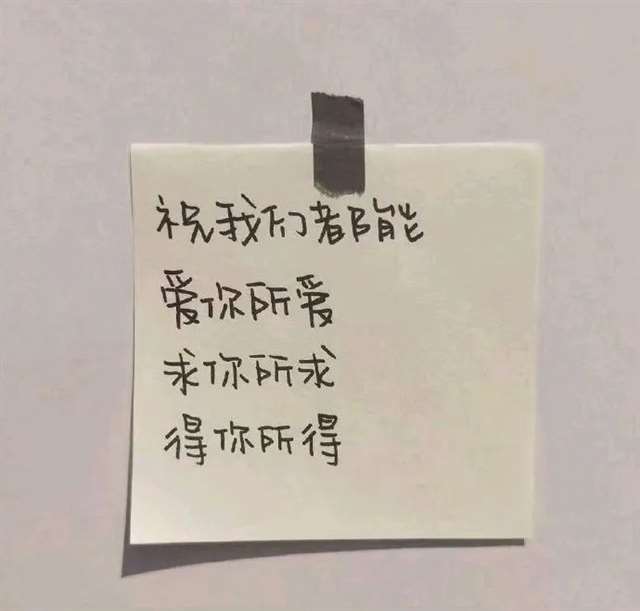 祝我们都能
爱你所爱
求你所求
得你所得